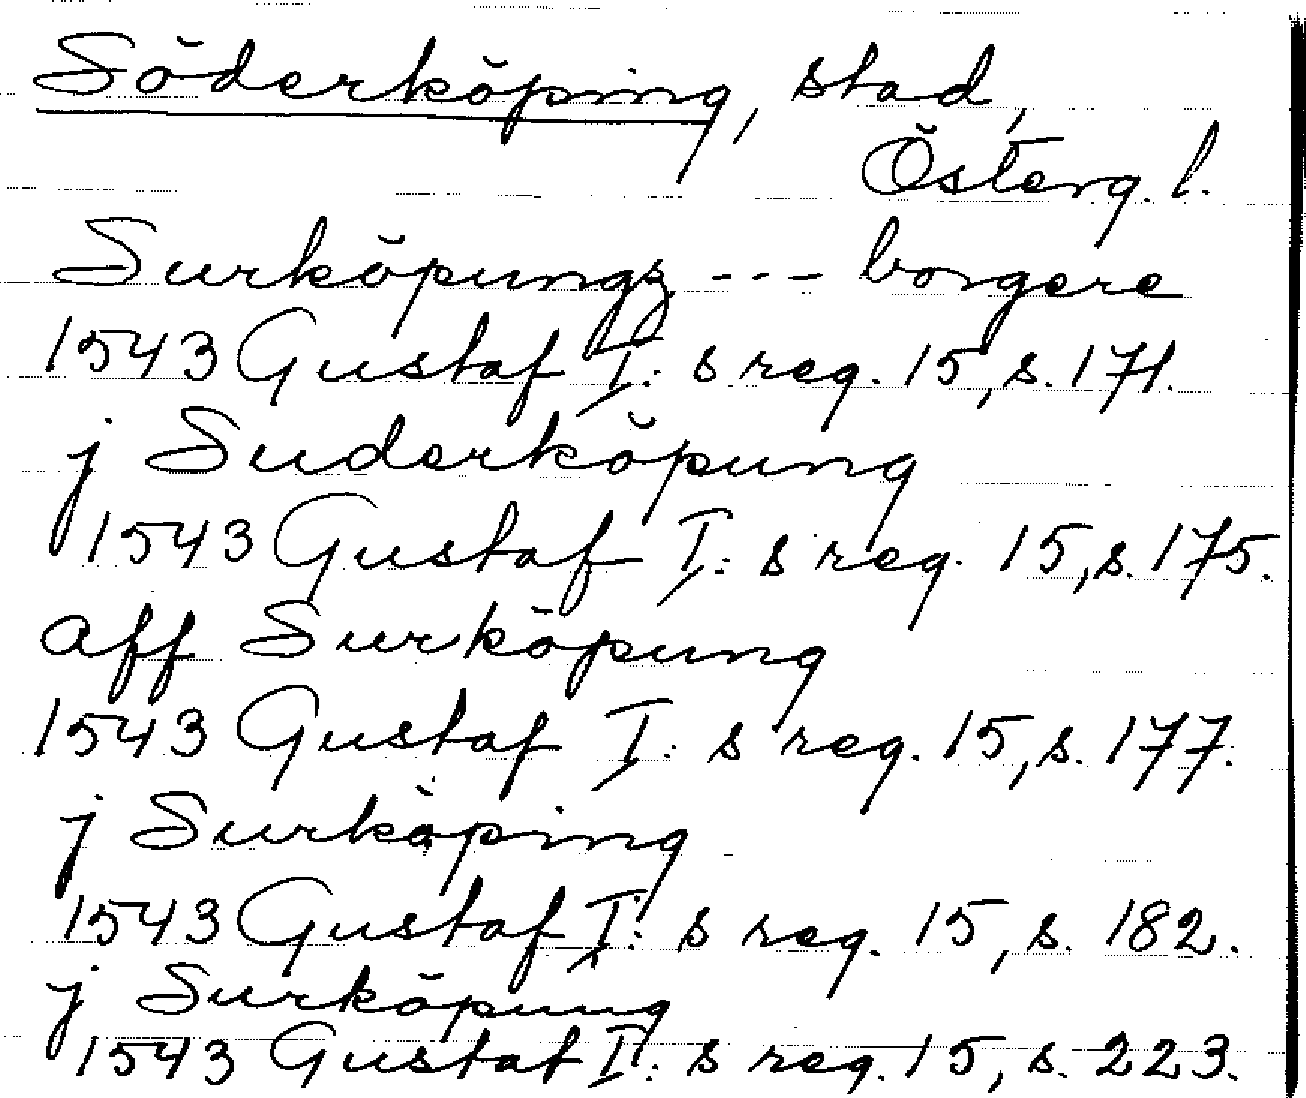 Söderköping, stad,
Österg. l.
Surköpungz --- borgere
1543 Gustaf I:s reg. 15, s. 171.
j Suderköpung
1543 Gustaf I:s reg. 15, s. 175.
aff Surköpung
1543 Gustaf I:s reg. 15, s. 177.
j Surköping
1543 Gustaf I:s reg. 15, s. 182.
j Surköpung
1543 Gustaf I:s reg. 15, s. 223.